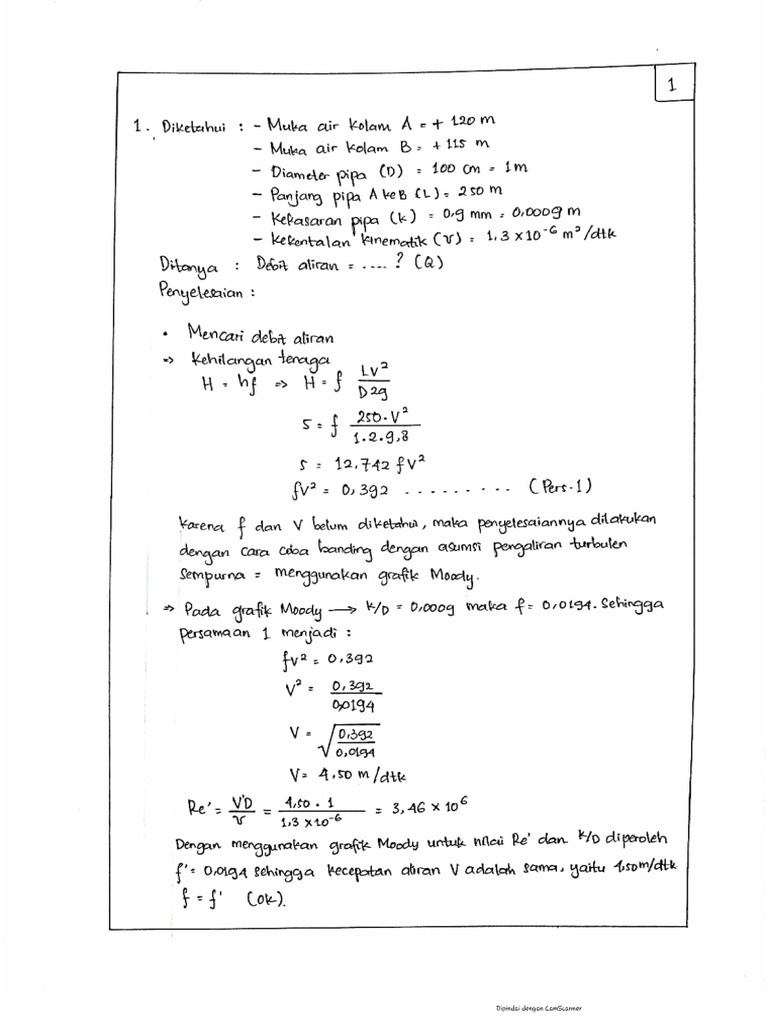 1
1. Diketahui : - Muka air kolam A = + 120 m
- Muka air kolam B = + 115 m
- Diameter pipa (D) = 100 cm = 1m
- Panjang pipa A ke B (L) = 250 m
- Kekasaran pipa (k) = 0,9 mm = 0,0009 m
- Kekentalan kinematik (v) = 1,3 x10⁻⁶ m²/dtk
Ditanya : Debit aliran = .... ? (Q)
Penyelesaian :
• Mencari debit aliran
=> Kehilangan tenaga
H = hf => H = f LV²/D2g
5 = f 250.V²/1.2.9,8
5 = 12,742 fV²
fV² = 0,392 ......... (Pers.1)
Karena f dan V belum diketahui, maka penyelesaiannya dilakukan
dengan cara coba banding dengan asumsi pengaliran turbulen
sempurna = menggunakan grafik Moody.
=> Pada grafik Moody → k/D = 0,0009 maka f = 0,0194. Sehingga
persamaan 1 menjadi :
fV² = 0,392
V² = 0,392/0,0194
V = √(0,392/0,0194)
V = 4,50 m/dtk
Re' = V'D/v = 4,50 . 1/1,3 x10⁻⁶ = 3,46 x 10⁶
Dengan menggunakan grafik Moody untuk nilai Re' dan k/D diperoleh
f' = 0,0194 sehingga kecepatan aliran V adalah sama, yaitu 4,50m/dtk
f = f' (ok).
Dipindai dengan CamScanner